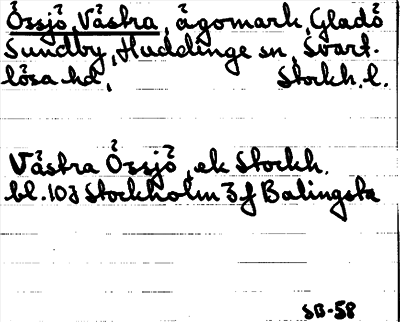 Össjö, Västra, ägomark, Gladö
Sundby, Huddinge sn, Svart-
lösa hd, Stockh. l.
Västra Össjö, ek Stockh.
bl. 10J Stockholm 3 f Balingsta
SB-58